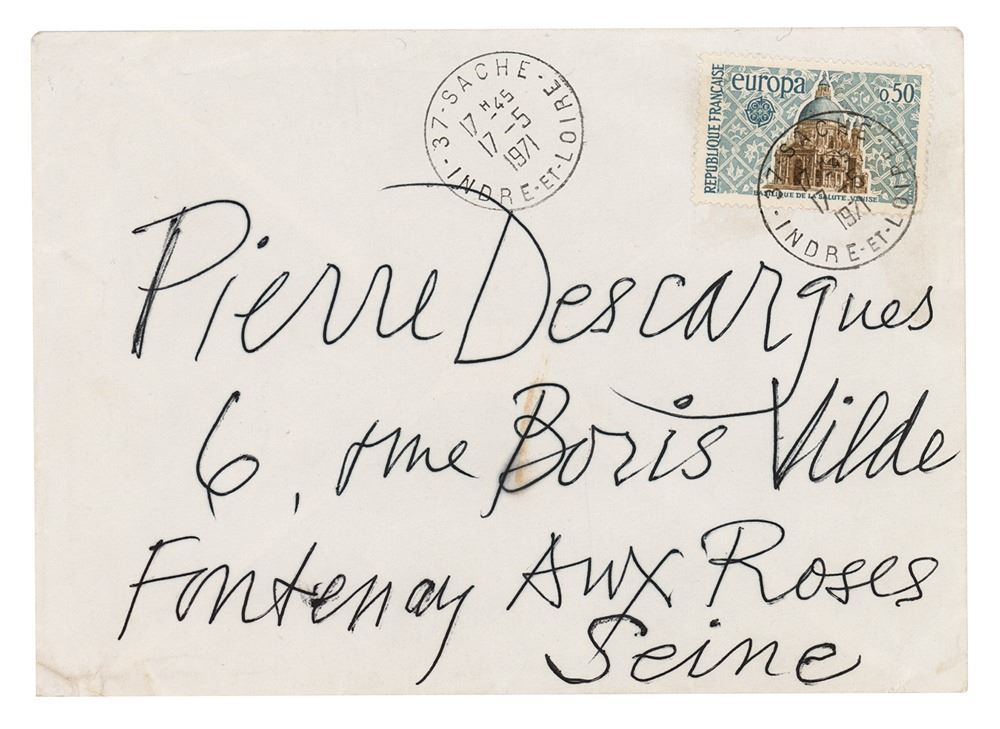 37-SACHE-
17H-45
17-5
1971
INDRE-ET-LOIRE
REPUBLIQUE FRANÇAISE
europa
0.50
BASILIQUE DE LA SALUTE. VENISE
37-SACHE-
17
1971
INDRE-ET-LOIRE
Pierre Descargues
6, rue Boris Vilde
Fontenay Aux Roses
Seine